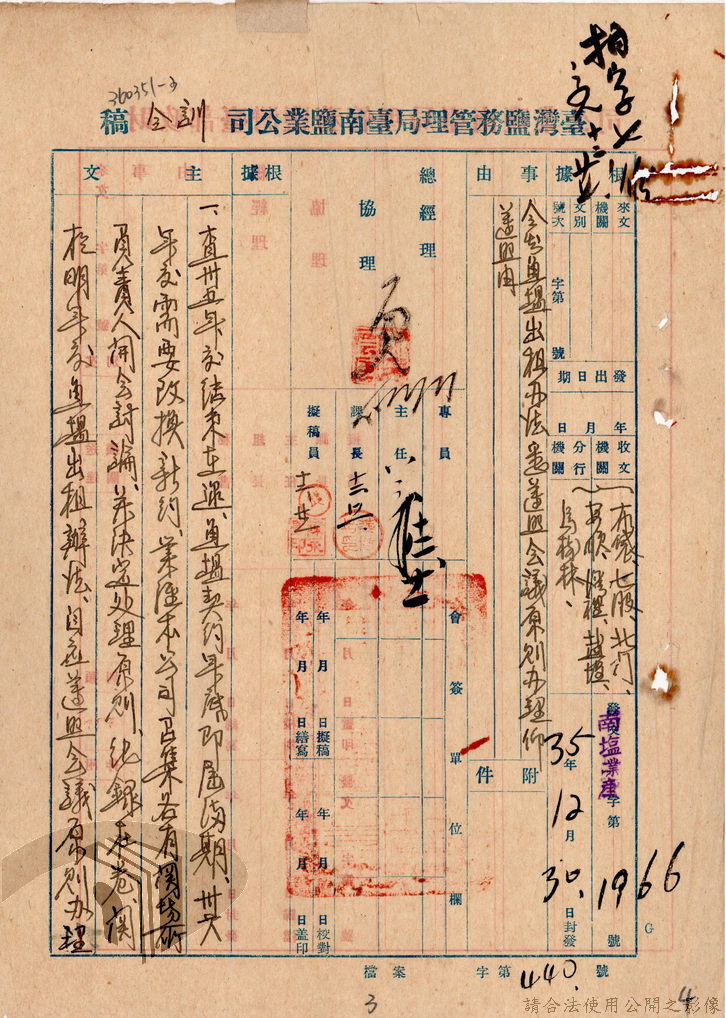 360351-3
臺灣鹽務管理局臺南鹽業公司 訓令 稿
根據
來文
機關
文別
號次
字第 號
發出日期
年 月 日
收文機關
分行機關
布袋、七股、北门、
烏樹林、
南塩業產
發文 字第 1966 號
35年12月30日封發
事由
令知魚塭出租办法悉遵照会議原則办理仰
遵照由
附件
總經理
協理
專員
主任
課長
擬稿員
會簽單位欄
年 月 日擬稿
年 月 日繕寫
年 月 日校對
年 月 日蓋印
根據
主文
一、查卅五年度結束在邇、魚塭契約年底即屆満期、卅六
年度需要改換新約、業經本公司召集各有関場所
負責人開会討論、並決定处理原則、纪錄在卷、関
於明年度魚塭出租辦法、自应遵照会議原則办理
檔案 字第 440. 號
G
3
4
請合法使用公開之影像